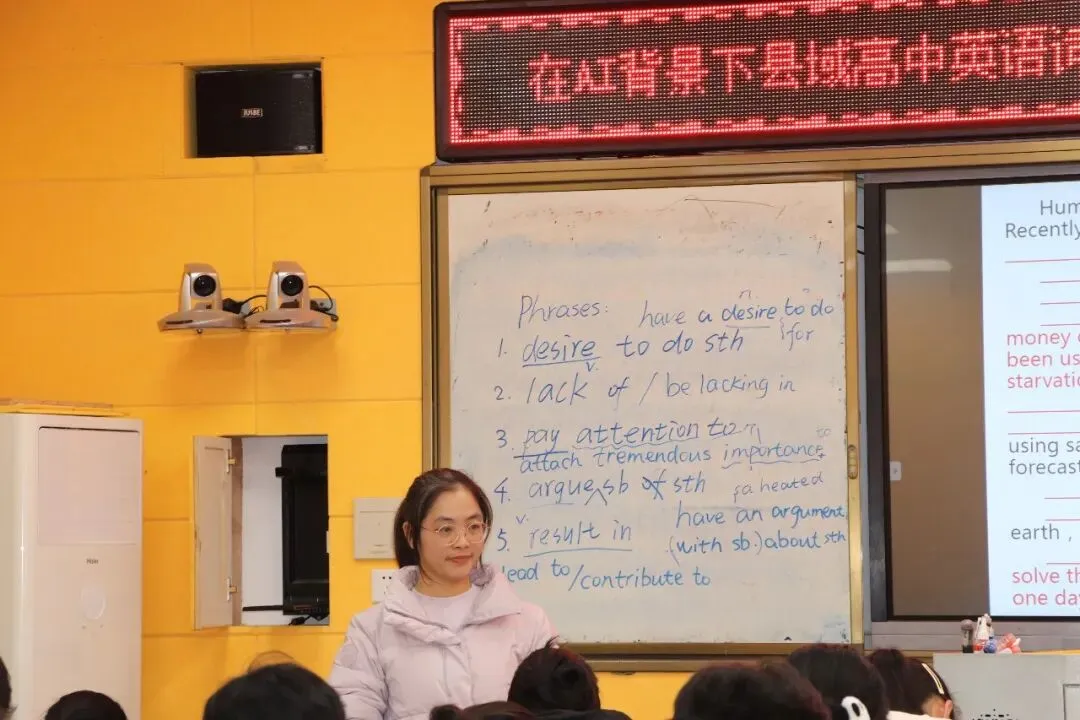 在AI背景下县域高中英语词
Phrases: have a desire to do
n
for
1. desire to do sth
v.
2. lack of / be lacking in
3. pay attention to
attach tremendous importance to
4. argue sb of sth
a heated
have an argument
v.
5. result in
(with sb.) about sth
lead to/contribute to
Hum
Recently
money
been us
starvatio
using sa
forecast
earth ,
solve th
one da
Haier